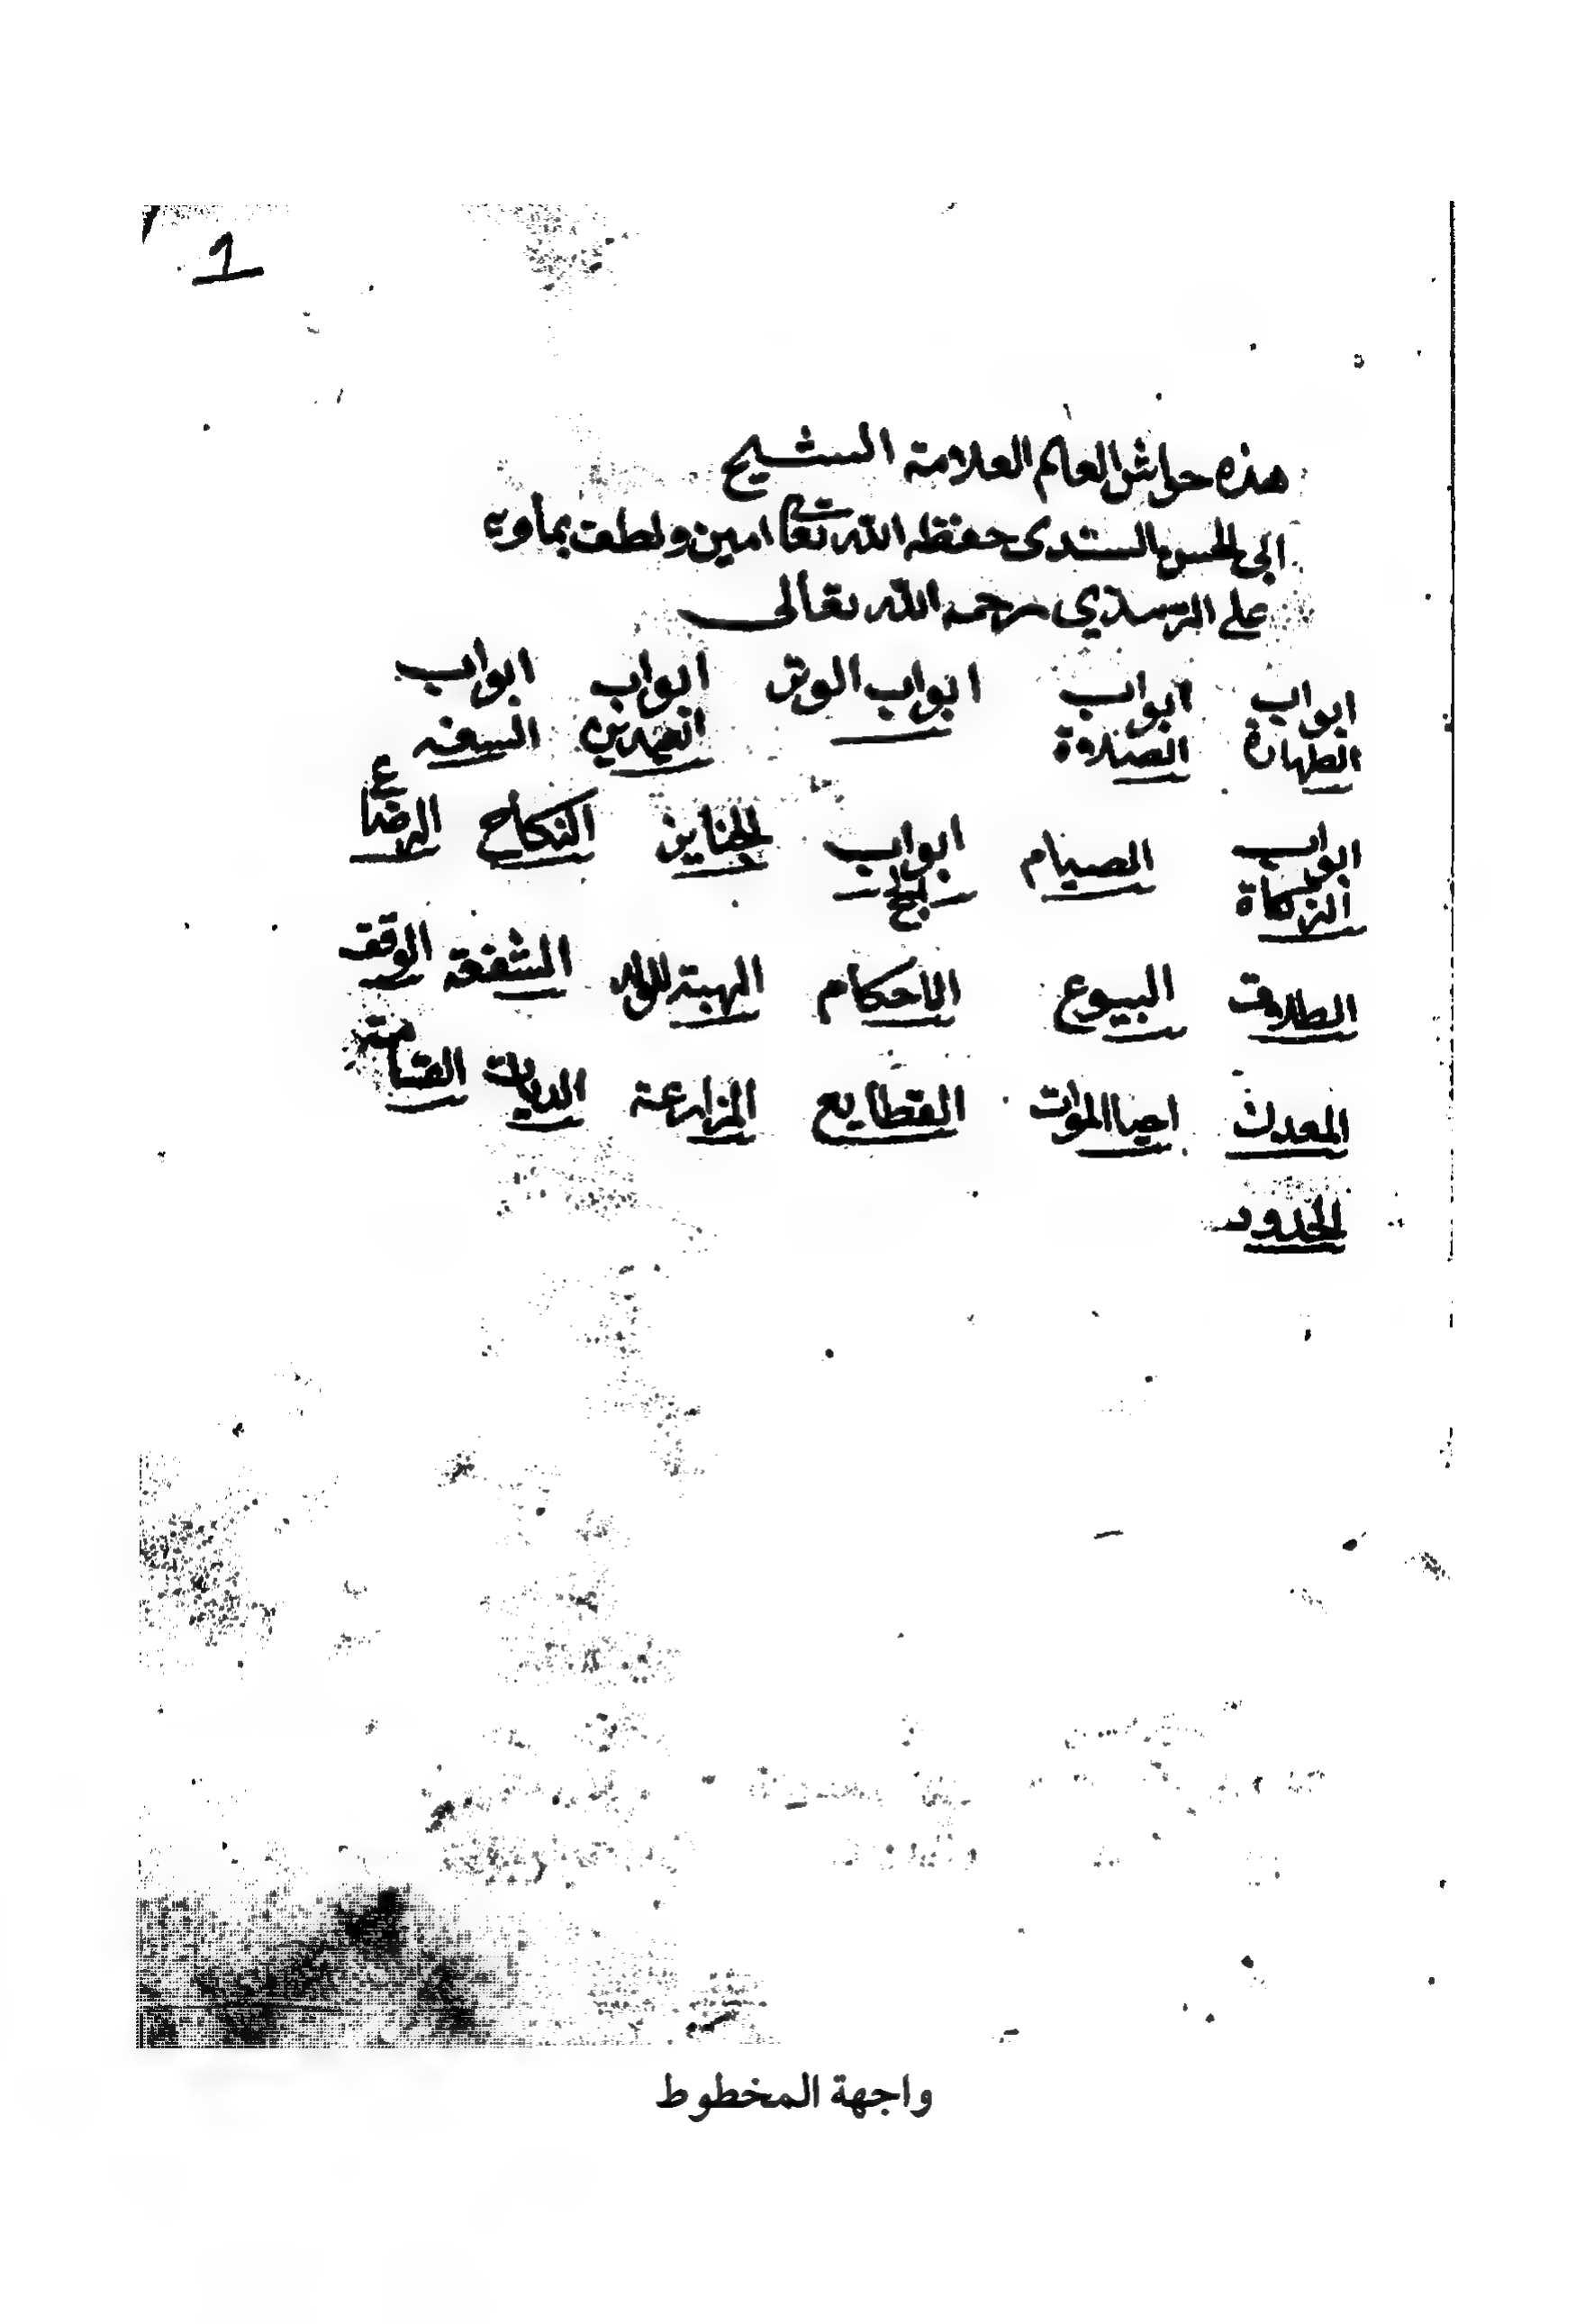 1
هذه حواش العالم العلامة الشيخ
ابي الحسن السندى حفظه الله تعالى امين ولطف به
على الترمذي رحمه الله تعالى
ابواب الطهارة ابواب الصلاة ابواب الوتر ابواب العيدين ابواب السفر
ابواب الزكاة الصيام ابواب الحج الجنايز النكاح الرضاع
الطلاق البيوع الاحكام الهبة للولد الشفعة الوقف
المعدن احيا الموات القطايع المزارعة الديات القسامة
الحدود
واجهة المخطوط